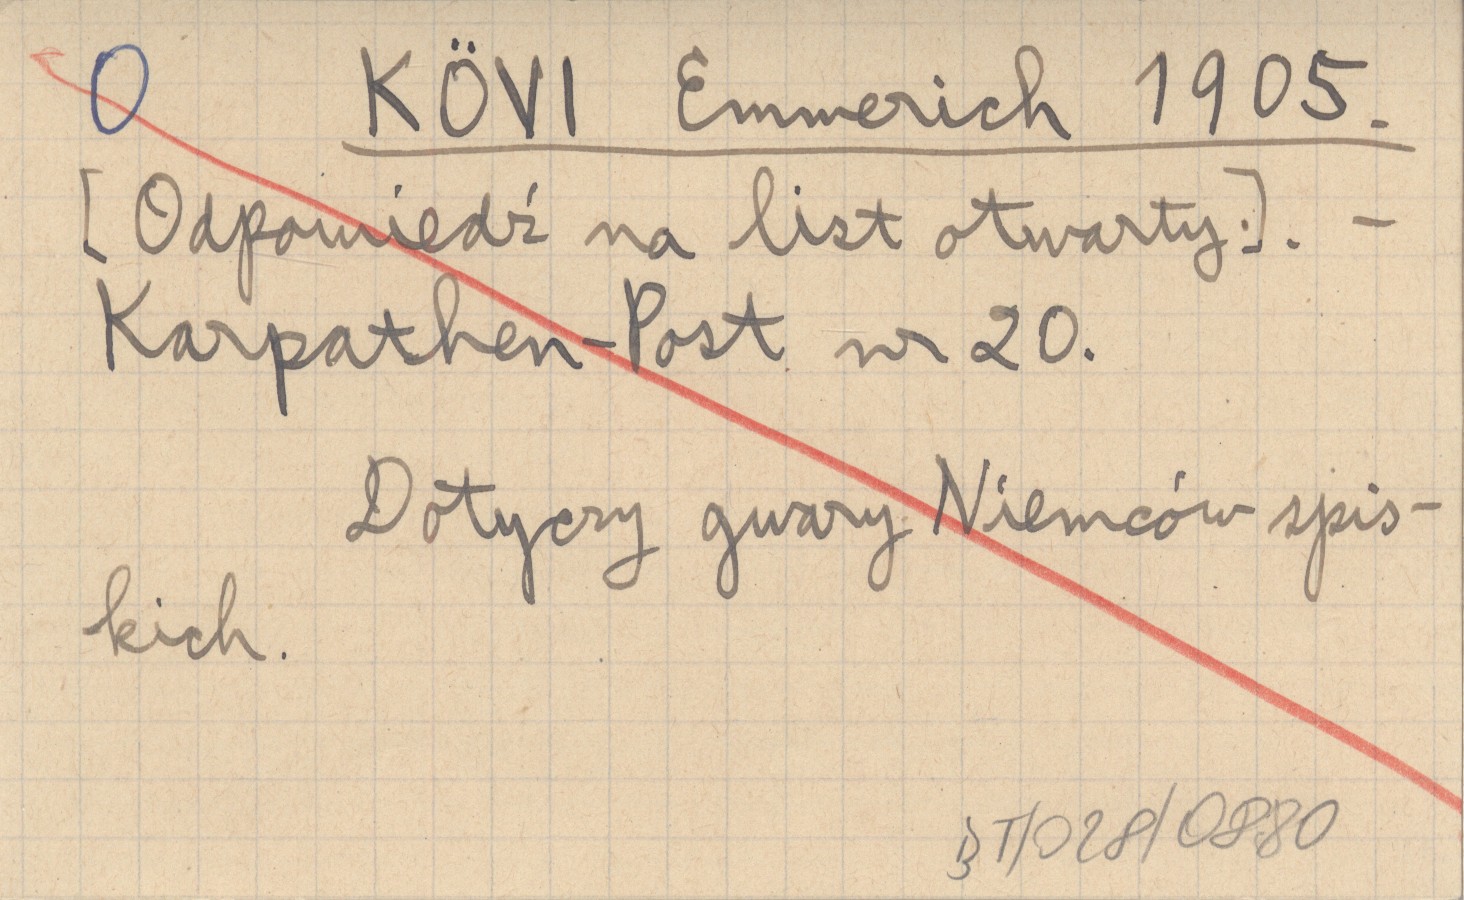 O KÖVI Emmerich 1905.
[Odpowiedź na list otwarty.]. –
Karpathen-Post nr 20.
Dotyczy gwary Niemców spis-
kich.
BT/028/0880